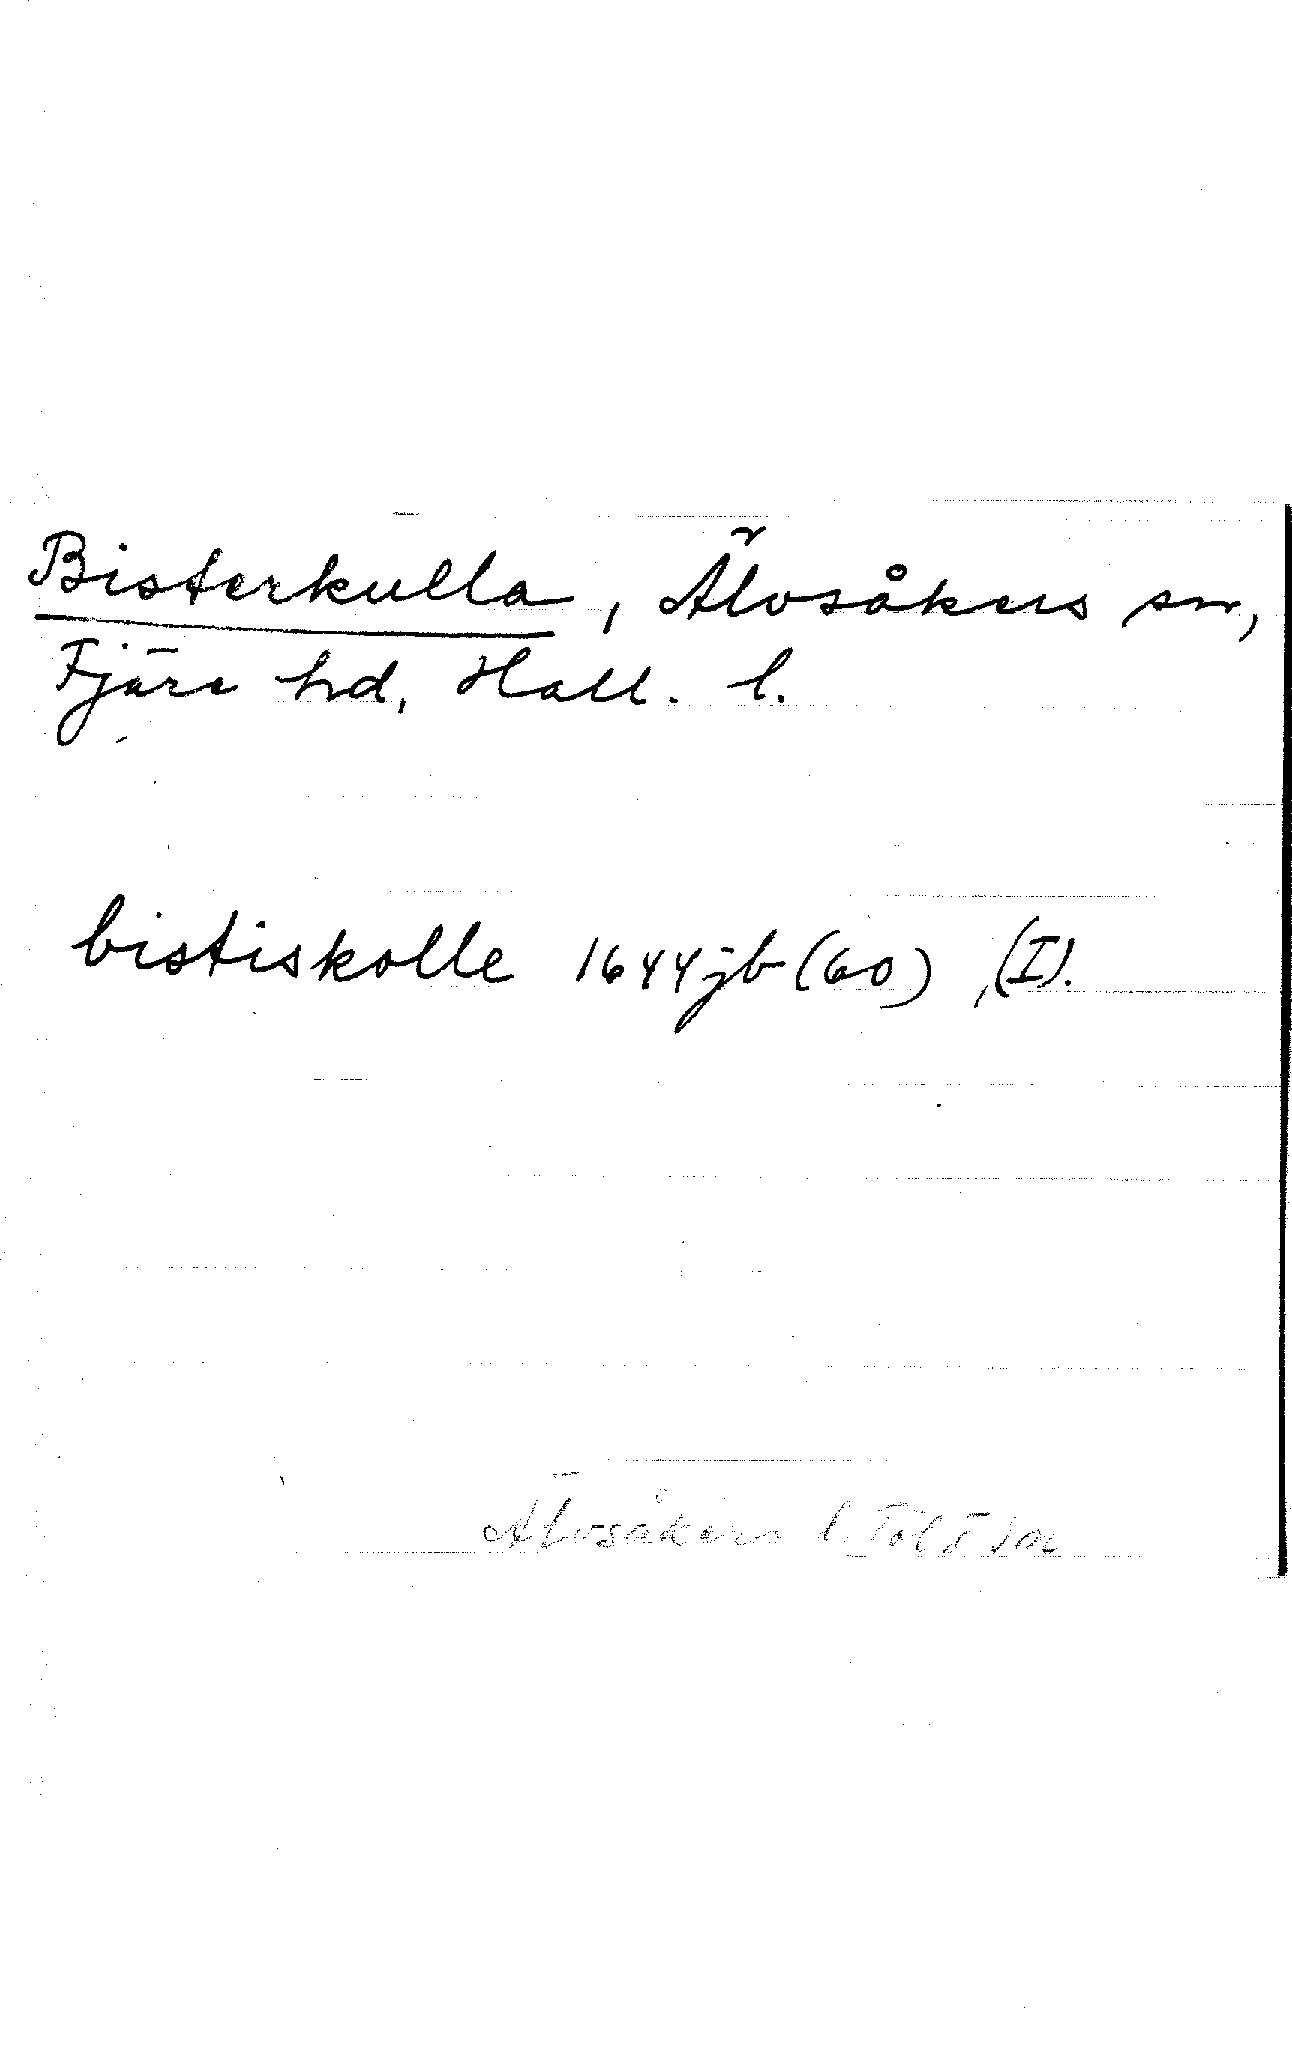 Bisterkulla, Älvsåkers sn,
Fjäre hd, Hall. l.
bistiskolle 1644 jb (60), (I).
Älvsåkers l. Tölö sn